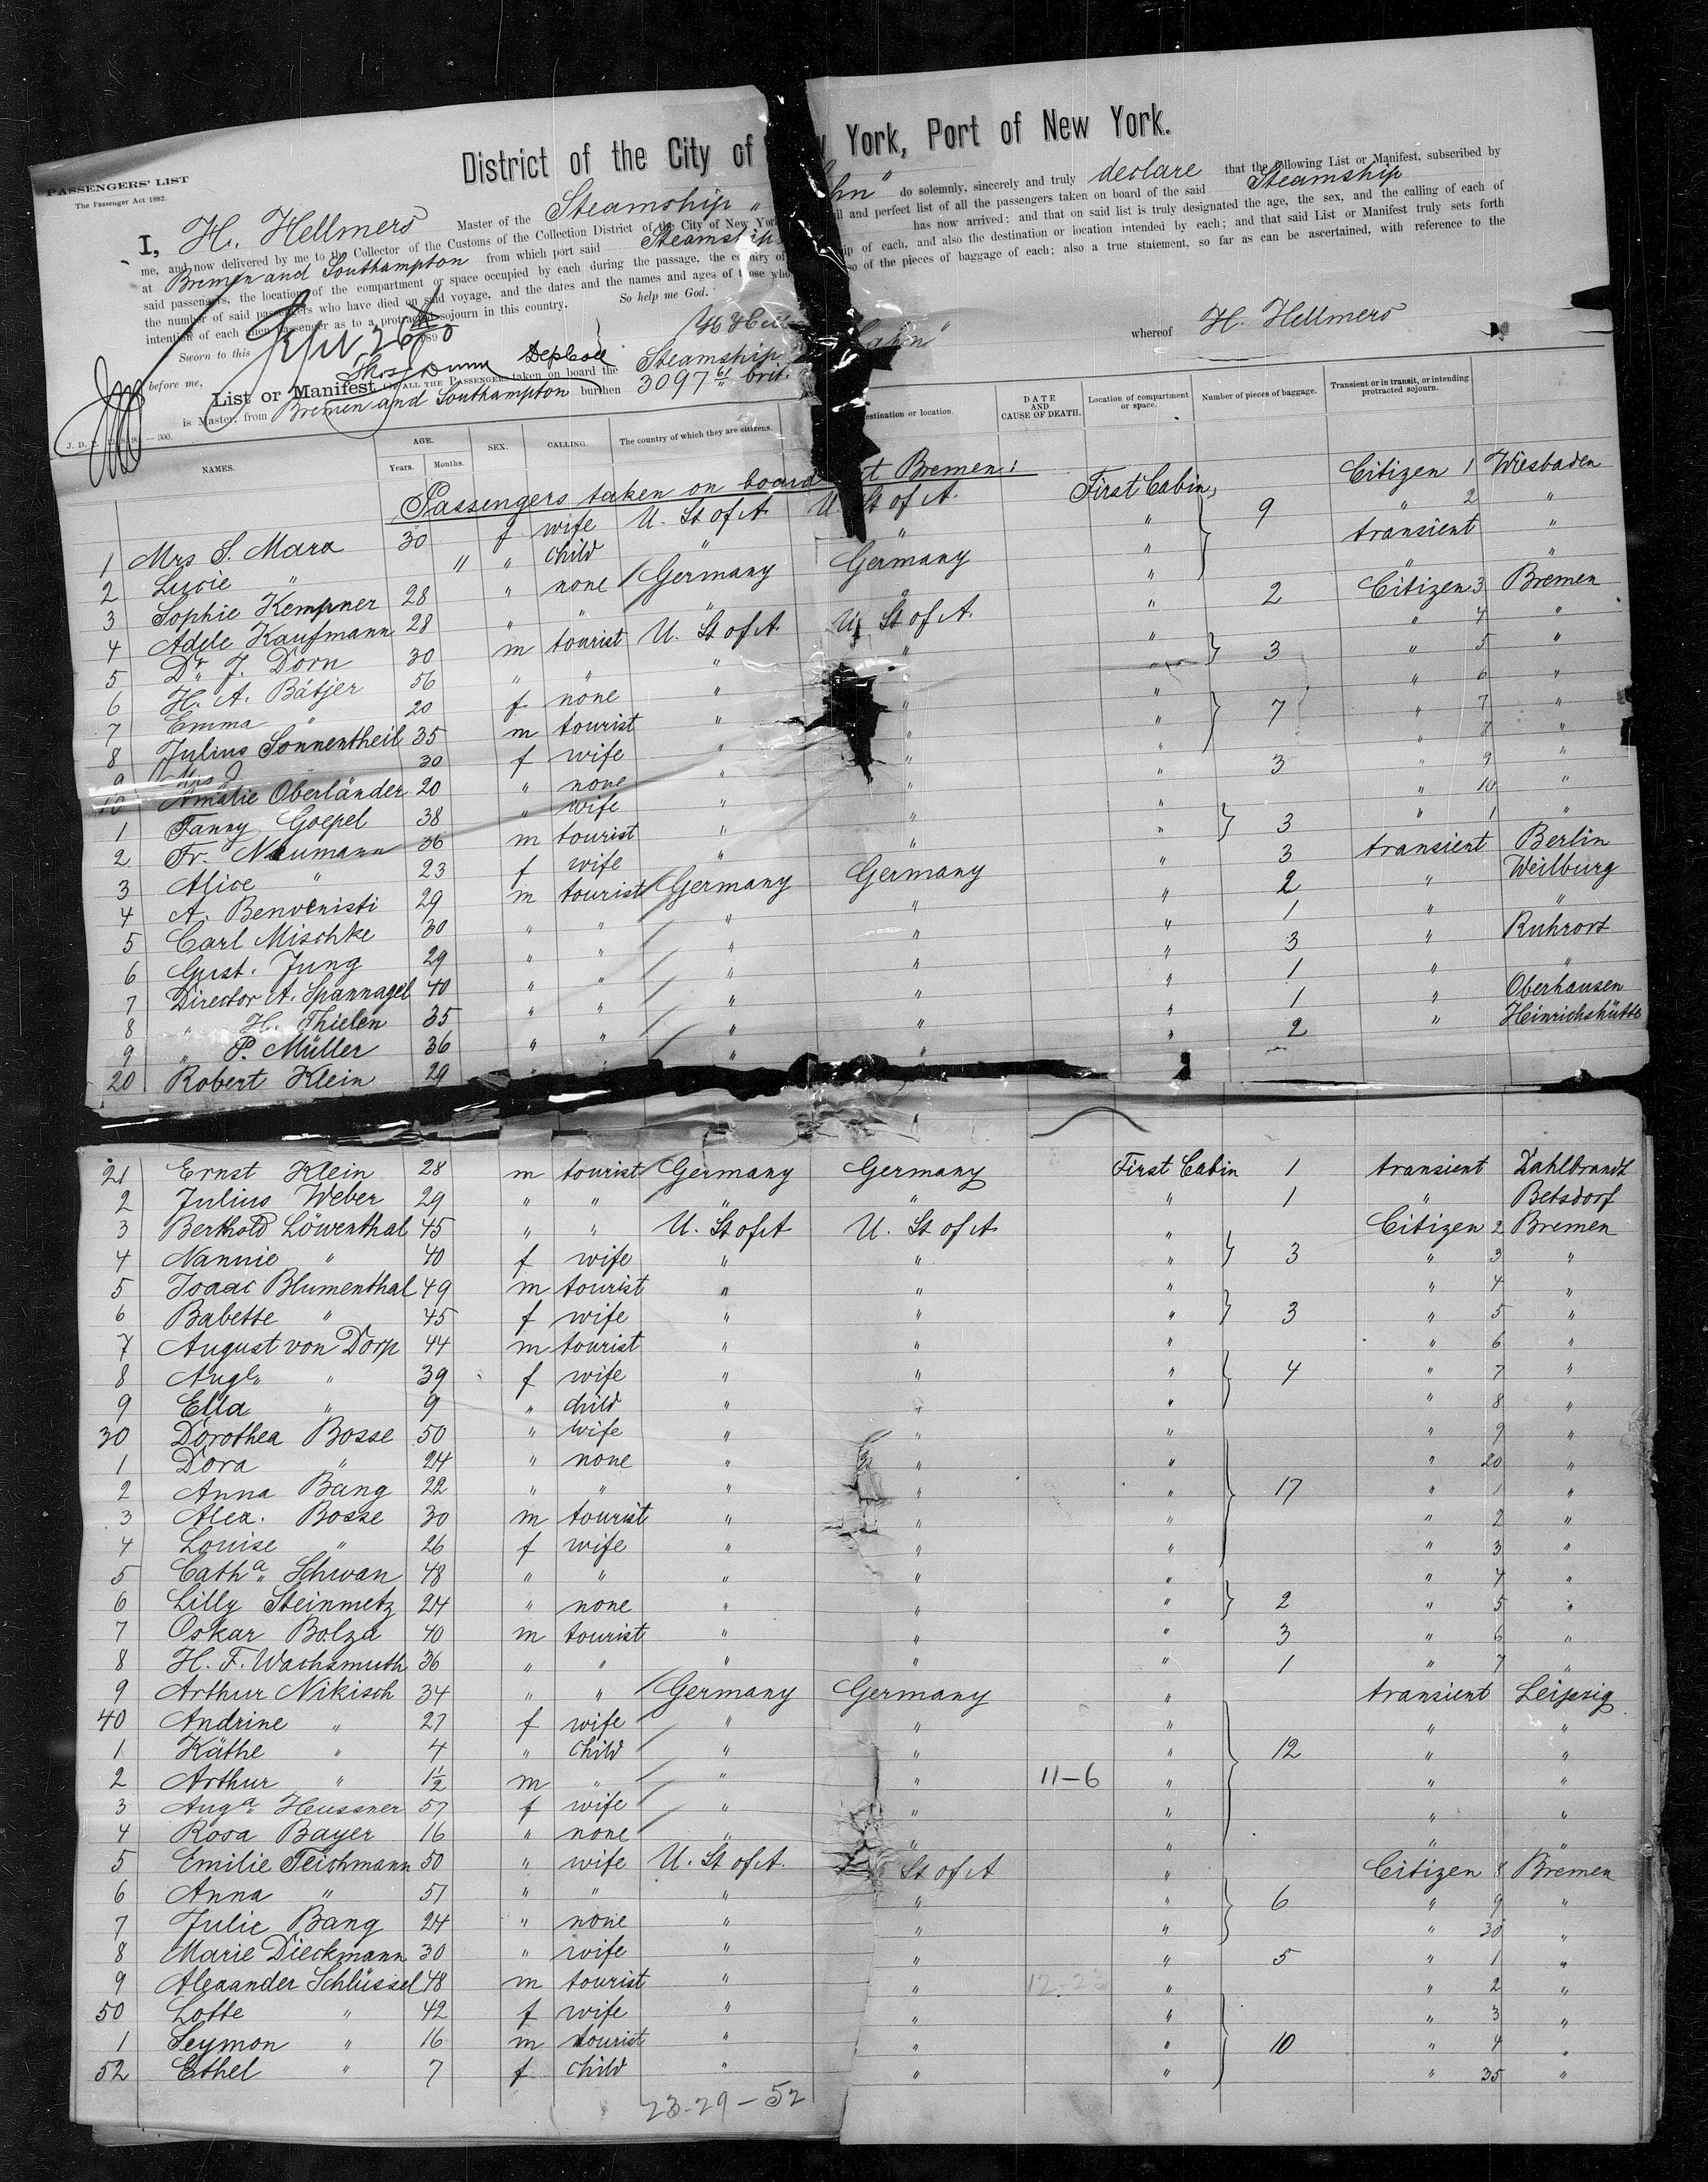 PASSENGERS' LIST
The Passenger Act 1882.
District of the City of York, Port of New York.
I, H. Hellmers Master of the Steamship " hn" do solemnly, sincerely and truly declare that the following List or Manifest, subscribed by
me, and now delivered by me to the Collector of the Customs of the Collection District of the City of New York and perfect list of all the passengers taken on board of the said Steamship
at Bremen and Southampton from which port said Steamship has now arrived; and that on said list is truly designated the age, the sex, and the calling of each of
said passengers, the location of the compartment or space occupied by each during the passage, the country of of each, and also the destination or location intended by each; and that said List or Manifest truly sets forth
the number of said passengers who have died on said voyage, and the dates and the names and ages of those who of the pieces of baggage of each; also a true statement, so far as can be ascertained, with reference to the
intention of each then passenger as to a protracted sojourn in this country. So help me God.
Sworn to this 26 189
before me,
List or Manifest OF ALL THE PASSENGERS taken on board the Steamship whereof H. Hellmers
is Master, from Bremen and Southampton burthen 3097 61 brit.
NAMES. AGE. Years. Months. SEX. CALLING. The country of which they are citizens. destination or location. DATE AND CAUSE OF DEATH. Location of compartment or space. Number of pieces of baggage. Transient or in transit, or intending protracted sojourn.
Passengers taken on board at Bremen:
1 Mrs S. Marx 30 f wife U. St of A. U. St of A. First Cabin, 9 Citizen 1 Wiesbaden
2 Lucie " " " child " " " " 2 "
3 Sophie Kempner 28 " none Germany Germany " transient "
4 Adele Kaufmann 28 " " " " " " "
5 Dr J. Dorn 30 m tourist U. St of A. U. St of A. " 2 Citizen 3 Bremen
6 H. A. Bätjer 56 " " " " " 3 " 4 "
7 Emma " 20 f none " " " " 5 "
8 Julius Sonnentheil 35 m tourist " " " 7 " 6 "
9 Mrs J. 30 f wife " " " " 7 "
10 Amalie Oberländer 20 " none " " " " 8 "
1 Fanny Goepel 38 " wife " " " 3 " 9 "
2 Fr. Naumann 36 m tourist " " " 3 " 10 "
3 Alice " 23 f wife " " " " 1 "
4 A. Benvenisti 29 m tourist Germany Germany " 3 transient Berlin
5 Carl Mischke 30 " " " " " 2 " Weilburg
6 Gust. Jung 29 " " " " " 1 " "
7 Director A. Spannagel 40 " " " " " 3 " Ruhrort
8 " H. Thielen 35 " " " " " 1 " "
9 " P. Müller 36 " " " " " 1 " Oberhausen
20 Robert Klein 29 " " " " " 2 " Heinrichshütte
21 Ernst Klein 28 m tourist Germany Germany First Cabin 1 transient Dahlbrandt
2 Julius Weber 29 " " " " " 1 " Betsdorf
3 Berthold Löwenthal 45 " " U. St of A U. St of A " 3 Citizen 2 Bremen
4 Nannie " 40 f wife " " " " 3 "
5 Isaac Blumenthal 49 m tourist " " " 3 " 4 "
6 Babette " 45 f wife " " " " 5 "
7 August von Dorp 44 m tourist " " " 4 " 6 "
8 Augte " 39 f wife " " " " 7 "
9 Ella " 9 " child " " " " 8 "
30 Dorothea Bosse 50 " wife " " " 17 " 9 "
1 Dora " 24 " none " " " " 20 "
2 Anna Bang 22 " " " " " " 1 "
3 Alex. Bosse 30 m tourist " " " " 2 "
4 Louise " 26 f wife " " " " 3 "
5 Catha Schwan 48 " " " " " 2 " 4 "
6 Lilly Steinmetz 24 " none " " " " 5 "
7 Oskar Bolza 40 m tourist " " " 3 " 6 "
8 H. F. Wachsmuth 36 " " " " " 1 " 7 "
9 Arthur Nikisch 34 " " Germany Germany " 12 transient Leipzig
40 Andrine " 27 f wife " " " " "
1 Käthe " 4 " child " " " " "
2 Arthur " 1½ m " " " 11-6 " " "
3 Auga Heussner 57 f wife " " " " "
4 Rosa Bayer 16 " none " " " " "
5 Emilie Teichmann 50 " wife U. St of A. St of A " 6 Citizen 8 Bremen
6 Anna " 51 " " " " " " 9 "
7 Julie Bang 24 " none " " " " 30 "
8 Marie Dieckmann 30 " wife " " " 5 " 1 "
9 Alexander Schlüssel 48 m tourist " " " 10 " 2 "
50 Lotte " 42 f wife " " " " 3 "
1 Seymon " 16 m tourist " " " " 4 "
52 Ethel " 7 f child " " " " 35 "
23-29-52